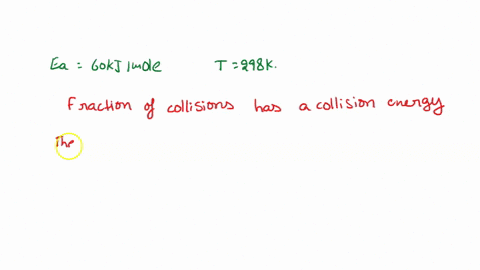 Ea = 60kJ/mole T = 298K.
Fraction of collisions has a collision energy
The